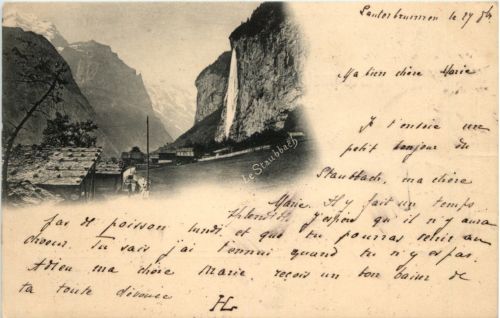 Lauterbrunnen le 27
Ma bien chère Marie
Je t'envoie un
petit bonjour du
Staubbach, ma chère
Le Staubbach
Marie. Il y fait un temps
J'espère qu'il n'y aura
pas de poisson lundi, et que tu pourras venir au
choeur. Tu sais j'ai l'ennui quand tu n'y es pas.
Adieu ma chère Marie, reçois un bon baiser de
ta toute dévouée